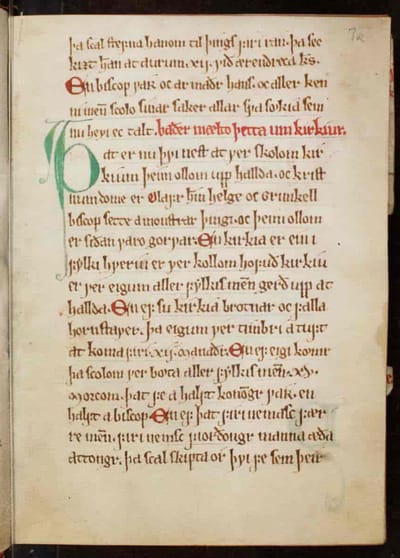 7r
þa scal stefna hanom til þings firi ran. þa see
kirt han at aurum .xij. við ærendreca k̅s.
En biscop var oc armaðr hans. oc aller ken
ni men̅ scolo sinar saker allar sva sokia sem
nu hevi ec talt. baðer mælto þetta um kirkiur.
Þat er nu þvi nest at ver skolom kir
kium þeim ollom upp hallda. oc krist
inndome er Olafr hin̅ helge oc Grimkell
biscop sette a monstrar þingi. oc þeim ollom
er siðan varo gorvar. En kirkia er ein i
fylki hveriu er ver kollom hofuð kirkiu
er ver eigum aller fylkis men̅ gerð upp at
hallda. En ef su kirkia brotnar oc falla
hornstaver. þa eigum ver timbri a tuft
at koma firi .xij. manaðr. En ef eigi komr
þa scolom ver bøta aller fylkis men̅ .xv.
morcom. þat fe a halft konongr var. en
halft a biscop. En ef þat firi nemasc fær
re men̅. firi nemsc fiorðongr manna æða
attongr. þa scal skipta or þvi fe sem þeir